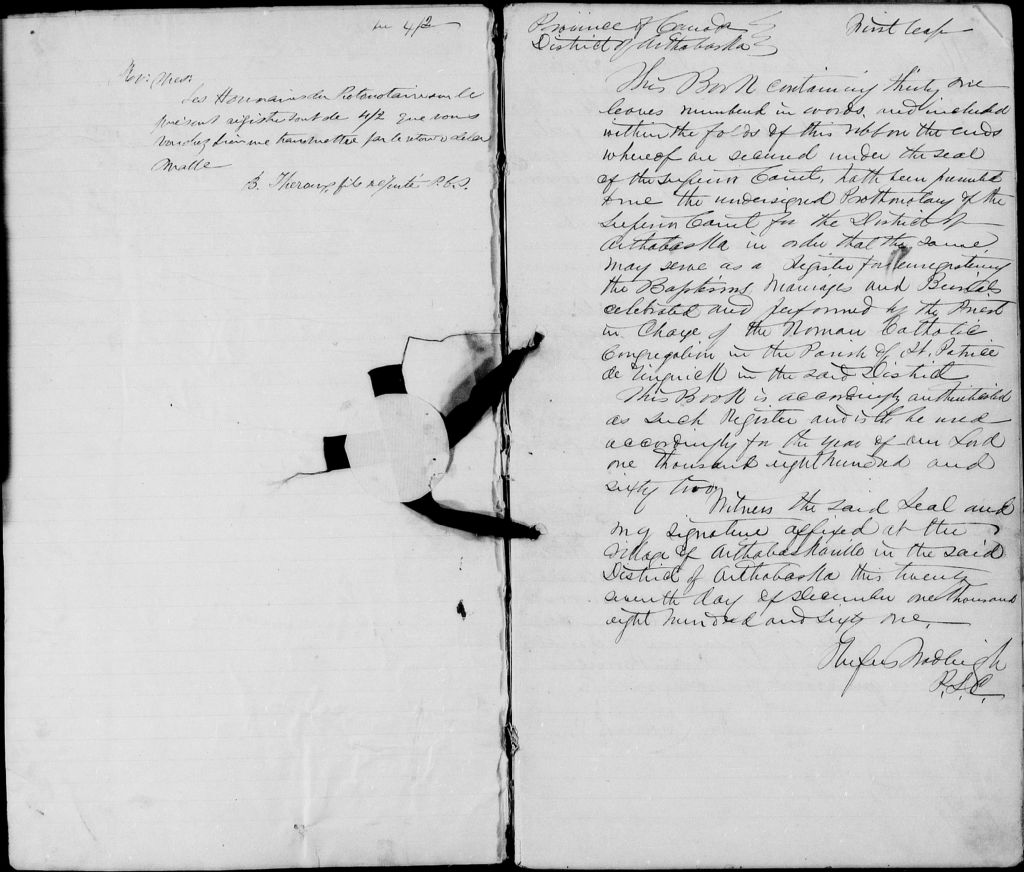 4/2
Les Honoraires du Protonotaire sur le
présent régistre sont de 4/2 que vous
voudrez bien me transmettre par le retour de la
Malle
député P.C.S.
Province of Canada
District of Arthabaska
First leaf
This Book containing thirty one
leaves numbered in words, and included
within the folds of this the ends
whereof are secured under the seal
of the Superior Court, hath been presented
to me the undersigned Prothonotary of the
Superior Court for the District of
Arthabaska in order that the same
may serve as a Register for enregistering
the Baptisms Marriages and Burials
celebrated and performed by the Priest
in Charge of the Roman Catholic
Congregation in the Parish of St. Patrice
de Tingwick in the said District
This Book is accordingly authenticated
as such Register and is to be used
accordingly for the year of our Lord
one thousand eight hundred and
sixty two,
Witness the said Seal and
my signature affixed at the
Village of Arthabaskaville in the said
District of Arthabaska this twenty
seventh day of December one thousand
eight hundred and sixty one.
P.S.C.